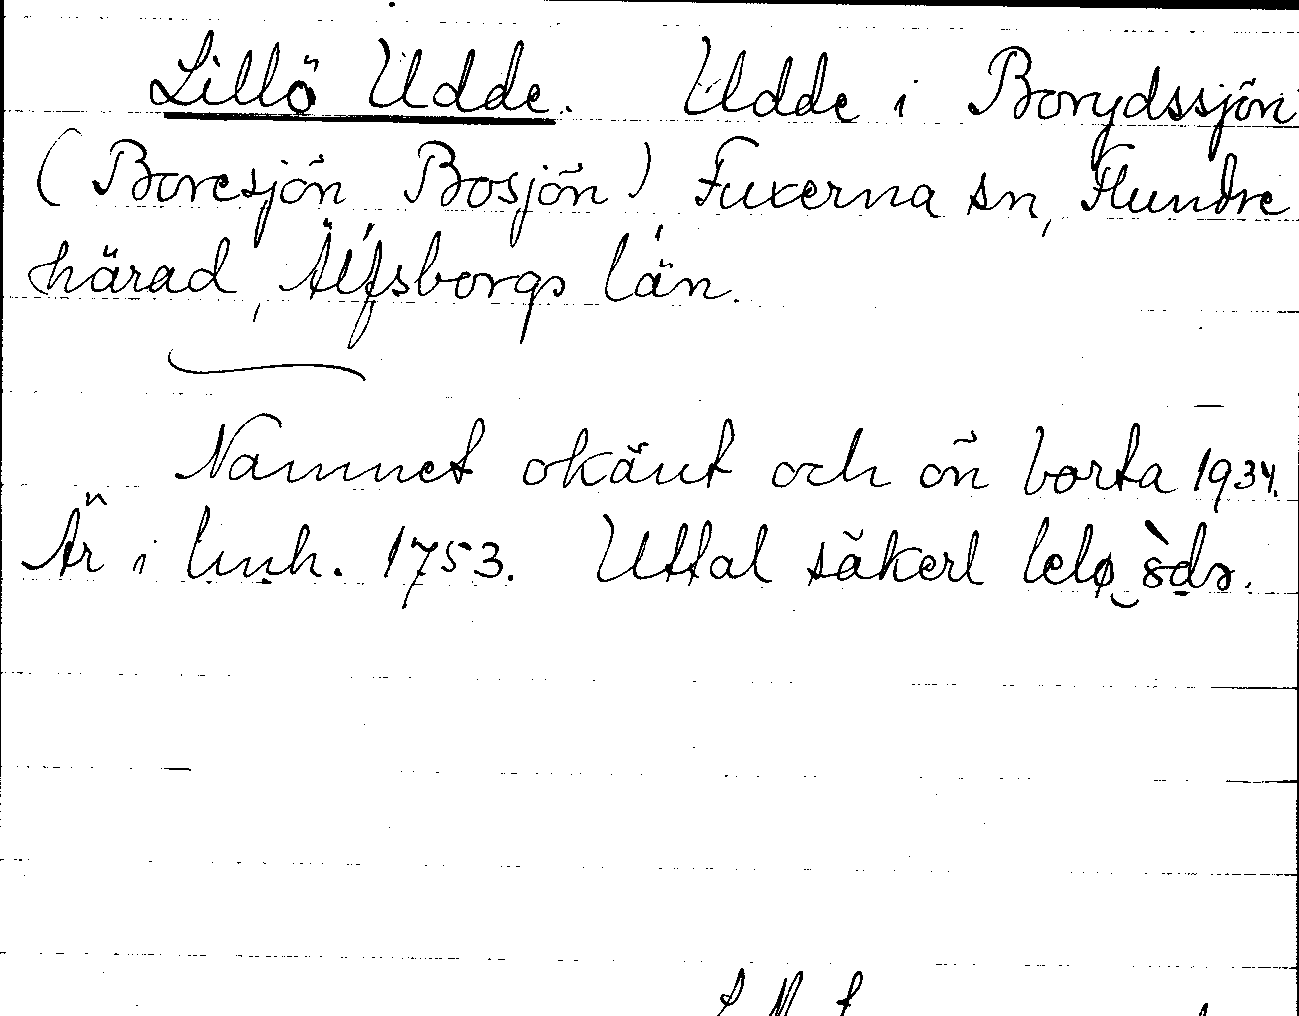 Lillö Udde. Udde i Borydssjön
(Boresjön, Bosjön), Fuxerna sn, Flundre
härad, Älfsborgs län.
Namnet okänt och ön borta 1934.
Är i lmh. 1753. Uttal säkerl